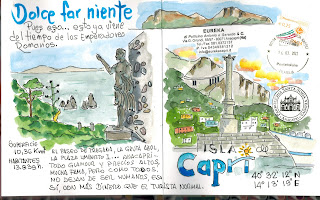 Dolce far niente
Pues esa... esto ya viene
del tiempo de los Emperadores
Romanos.
Superficie
10,36 Km²
HABITANTES
13.939h.
EL PASEO DE TRAGARA, LA GRUTA AZUL,
LA PLAZA UMBERTO I... ANACAPRI...
TODO GLAMOUR y PRECIOS ALTOS,
MUCHA FAMA, PERO COMO TODOS,
NO DEJAN DE SER HUMANOS, ESO
SÍ, CON MÁS DINERO QUE EL TURISTA NORMAL.
EUREKA
ISLA de
Capri
40° 32' 12" N
14° 13' 19" E